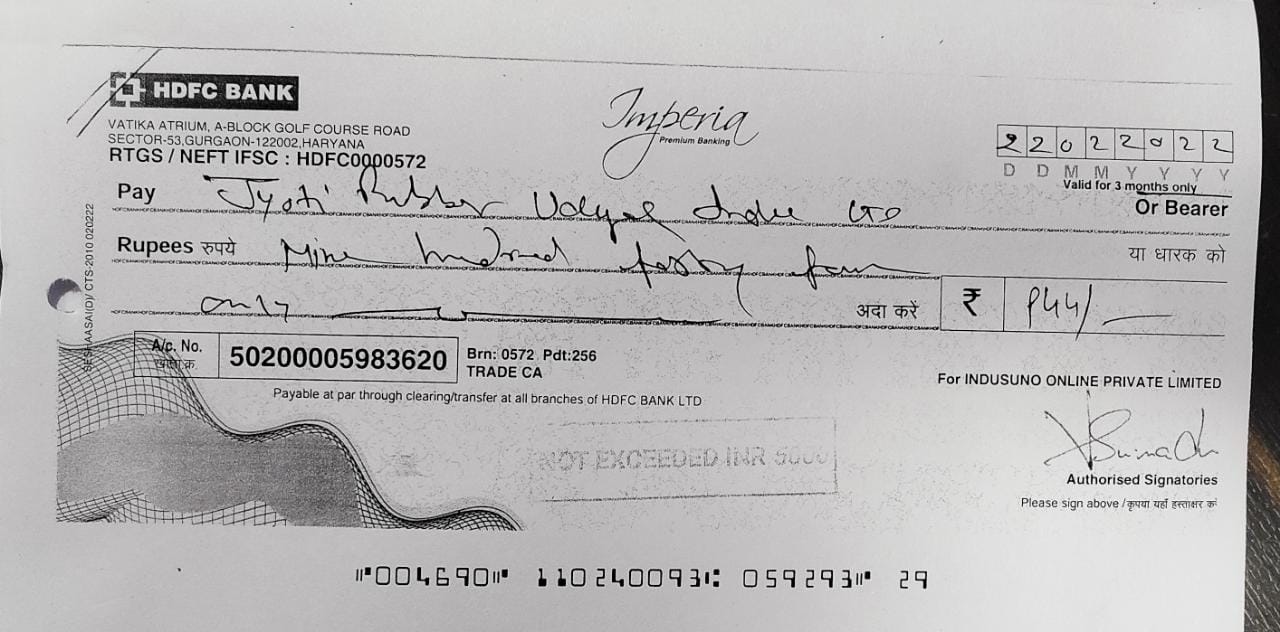 HDFC BANK
VATIKA ATRIUM, A-BLOCK GOLF COURSE ROAD
SECTOR-53,GURGAON-122002,HARYANA
RTGS / NEFT IFSC : HDFC0000572
Imperia
Premium Banking
22022022
D D M M Y Y Y Y
Valid for 3 months only
Pay Jyoti Rubber Udyog India LTD Or Bearer
Rupees रुपये Nine hundred forty four या धारक को
only अदा करें ₹ 944/
A/c. No. 50200005983620 Brn: 0572 Pdt:256
खाता क्र. TRADE CA
Payable at par through clearing/transfer at all branches of HDFC BANK LTD
For INDUSUNO ONLINE PRIVATE LIMITED
NOT EXCEEDED INR 5000
Authorised Signatories
Please sign above / कृपया यहाँ हस्ताक्षर करें
CTS-2010 020222
⑈004690⑈ 110240093⑆ 059293⑈ 29